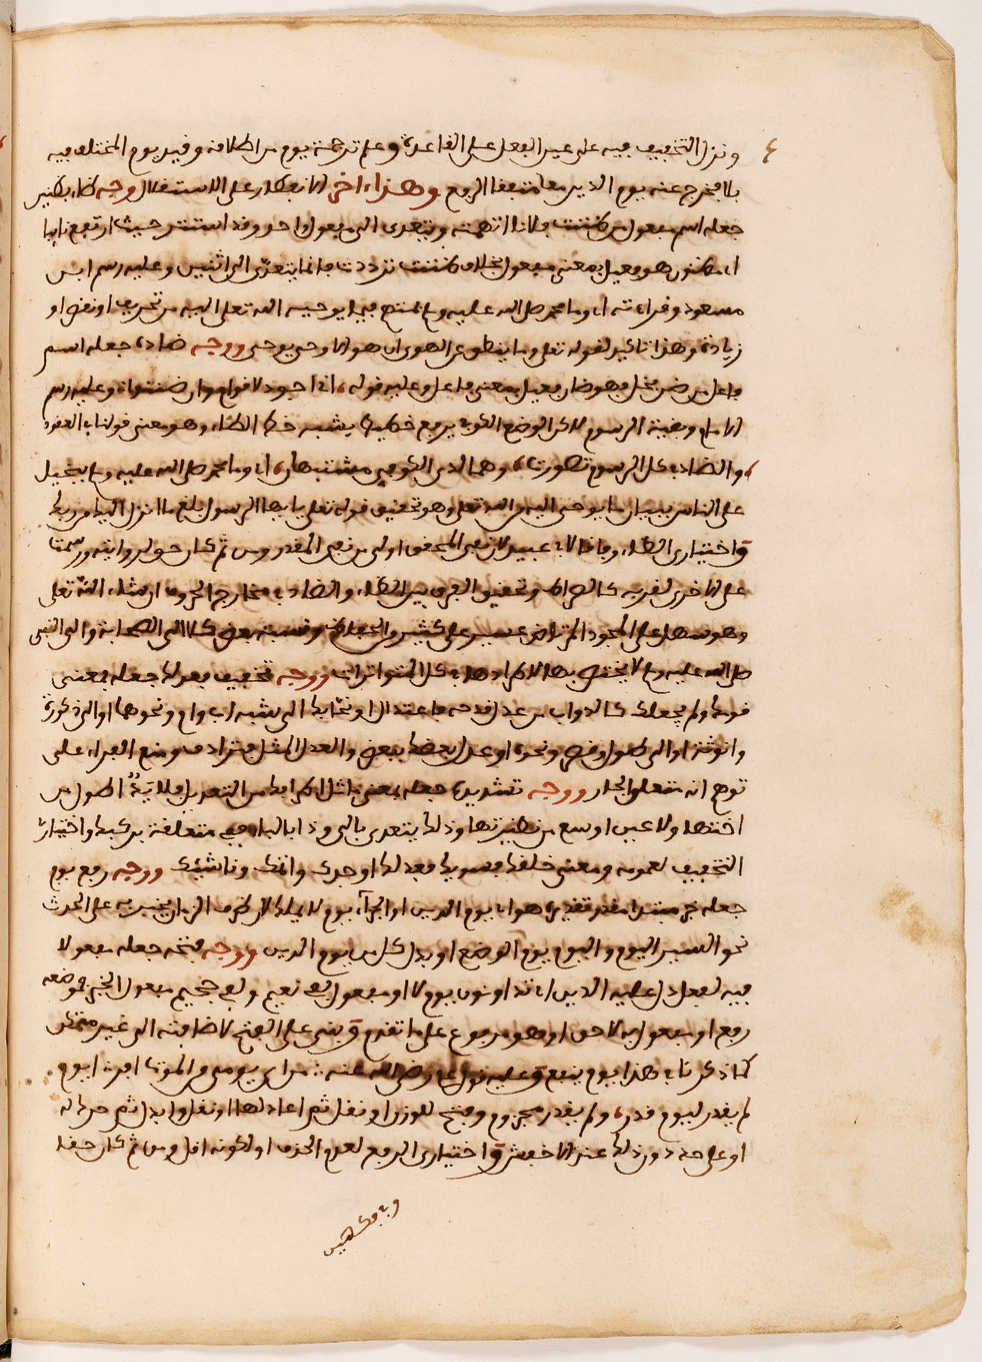 ونزل التخفيف فيه على عين الفعل على القاعدة وعلم ترجمة يوم من اطلاقه وقيد يوم المختلف فيه
بلا فخرج عنه يوم الدين معا متفقا الرفع وهذا اخر الانفطار على الاستفلال وجه ظاء بظنين
جعله اسم مفعول من ظننت فلانا اتهمته ويتعدى الى مفعول واحد وقد استتر حيث ارتفع نايبا
اى مظنون فهو فعيل بمعنى مفعول بخلاف ظننت ترددت فانما يتعدى الى اثنين وعليه رسم ابن
مسعود وقراءته اى وما محمد صلى الله عليه وسلم بمتهم فيما يوحيه الله تعلى اليه من تحريف او نقص او
زيادة وهذا تاكيد لقوله تعلى وما ينطق عن الهوى ان هو الا وحي يوحى ووجه ضاده جعله اسم
فاعل من ضن بخل فهو ضنين فعيل بمعنى فاعل وعليه قوله انى اجود لاقوام وان ضننوا وعليه رسم
الامام وبقية الرسوم لاكن الوضع الكوفي يرفع خطيطا يشبه خط الظاء وهو معنى قولنا في العقود
والضاد في كل الرسوم تصورت وهما لدى الكوفي مشتبهان اى وما محمد صلى الله عليه وسلم ببخيل
على الناس ببيان ما يوحى اليه من الله تعلى وهو تحقيق قوله تعلى يا ايها الرسول بلغ ما انزل اليك من ربك
واختيارى الظاء وفاقا لابي عبيد لان نفي المحقق اولى من نفي المقدر ومن ثم كان حولر روايته ورسمتا
على الاخرى لقربه كالصراط وتحقيق الفرق بين الظاء والضاد في مخارج الحروف ان شاء الله تعلى
وهو سهل على المجود المرتاض عسير على كثير من الجهلاء ونسبة بعض كلا الى الصحابة والى النبي
صلى الله عليه وسلم لا يختص بها لاطرادها في كل المتواترات ووجه تخفيف بعدلك جعله بمعنى
قومك ولم يجعلك كالدواب من عدل قدحه فاعتدل او نحا بك الى شبه اب وام ونحوهما او الى ذكورة
وانوثة او الى طول وقصر ونحوه او عدل بعضك ببعض والعدل المثل فيترادف ومنع الفراء على
توهم انه متعلق الجار ووجه تشديده جعله بمعنى ماثل اطرافك من التعديل فلا يد اطول من
اختها ولا عين اوسع من نظيرتها وذلك يتعدى بالى وذا بالباء ففي متعلقة بركبك واختيارى
التخفيف لعمومه ومعنى خلقك فسويك فعدلك اوجدك واتمك وناشبك ووجه رفع يوم
جعله خبر مبتدا مقدر تقديره هو اى يوم الدين او الجزاء يوم لا يملك لان ظرف الزمان يخبر به على الحدث
نحو السير اليوم واليوم يوم الوضع او بدل كل من يوم الدين ووجه فتحه جعله مفعولا
فيه لفعل دل عليه الدين اى تدانون يوم لا او مفعول لفى نعيم ولفى جحيم مفعول الخبر فموضعه
رفع او مفعول به لاحق او فهو مرفوع على ما تقدم وبني على الفتح لاضافته الى غير متمكن
كما ذكرنا في هذا يوم ينفع وعليه قول علي رضي الله عنه من اي يومي من الموت افر ايوم
لم يقدر ام يوم قدر ولم يقدر مجزوم وفتح للوزن او نقل ثم اعادلها او نقل وابدل ثم حركه
او على حده دون ذلك عند الاخفش واختيارى الرفع لعدم الحذف او لكونه اقل ومن ثم كان حقه